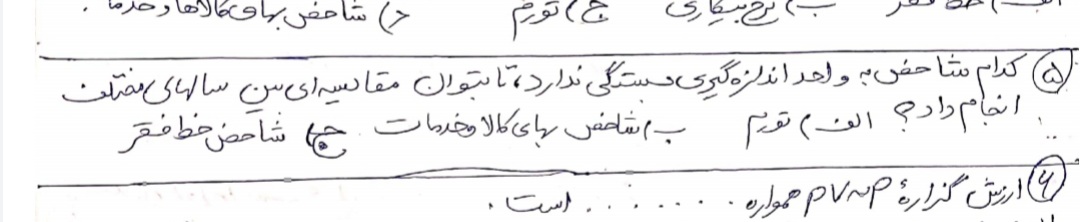 الف) خط فقر ب) نرخ بیکاری ج) تورم د) شاخص بهای کالاها و خدمات .
۵) کدام شاخص به واحد اندازه‌گیری بستگی ندارد، تا بتوان مقایسه‌ای بین سالهای مختلف
انجام داد؟ الف) تورم ب) شاخص بهای کالا و خدمات ج) شاخص خط فقر
۶) ارزش گزارهٔ p∨~p همواره ........ است .